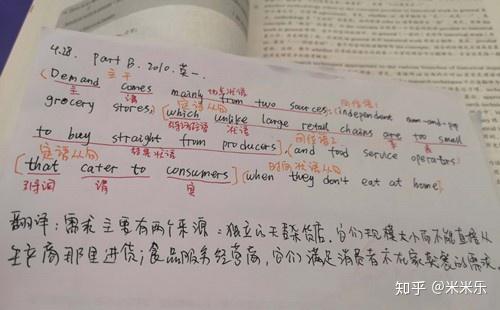 4.28. Part B. 2010. 英一.
主干
Demand comes mainly from two sources: (independent
主 谓 同位语1
grocery stores,) (which unlike large retail chains are too small
定语从句
to buy straight from producers) (and food service operators)
同位语2
定语从句 时间状语从句
(that cater to consumers) (when they don't eat at home)
引导词 谓 宾
翻译：需求主要有两个来源：独立的杂货店，它们规模太小而不能直接从
生产商那里进货；食品服务经营商，它们满足消费者不在家就餐的需求。
知乎 @米米乐